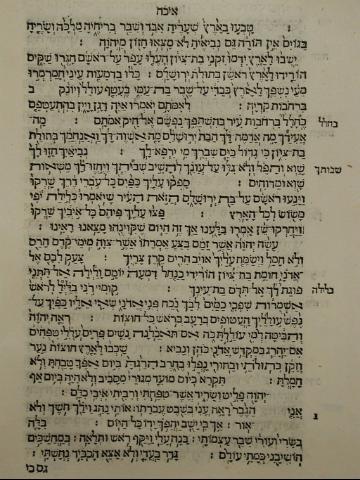 איכה
טבעו בארץ שעריה אבד ושבר בריחיה מלכה ושריה
בגוים אין תורה גם נביאיה לא מצאו חזון מיהוה :
ישבו לארץ ידמו זקני בת ציון העלו עפר על ראשם חגרו שקים
הורידו לארץ ראשן בתולת ירושלם : כלו בדמעות עיני חמרמרו
מעי נשפך לארץ כבדי על שבר בת עמי בעטף עולל ויונק
ב ברחבות קריה : לאמתם יאמרו איה דגן ויין בהתעטפם
כחלל ברחבות עיר בהשתפך נפשם אל חיק אמתם : מה
אעידך מה אדמה לך הבת ירושלם מה אשוה לך ואנחמך בתולת
בת ציון כי גדול כים שברך מי ירפא לך : נביאיך חזו לך
שבותך שוא ותפל ולא גלו על עונך להשיב שביתך ויחזו לך משאות
שוא ומדוחים : ספקו עליך כפים כל עברי דרך שרקו
וינעו ראשם על בת ירושלם הזאת העיר שיאמרו כלילת יפי
משוש לכל הארץ : פצו עליך פיהם כל איביך שרקו
ויחרקו שן אמרו בלענו אך זה היום שקוינהו מצאנו ראינו :
עשה יהוה אשר זמם בצע אמרתו אשר צוה מימי קדם הרס
ולא חמל וישמח עליך אויב הרים קרן צריך : צעק לבם אל
אדני חומת בת ציון הורידי כנחל דמעה יומם ולילה אל תתני
בלילה פוגת לך אל תדם בת עינך : קומי רני בליל לראש
אשמרות שפכי כמים לבך נכח פני אדני שאי אליו כפיך על
נפש עולליך העטופים ברעב בראש כל חוצות : ראה יהוה
והביטה למי עוללת כה אם תאכלנה נשים פרים עללי טפחים
אם יהרג במקדש אדני כהן ונביא : שכבו לארץ חוצות נער
וזקן בתולתי ובחורי נפלו בחרב הרגת ביום אפך טבחת ולא
חמלת : תקרא כיום מועד מגורי מסביב ולא היה ביום אף
יהוה פליט ושריד אשר טפחתי ורביתי איבי כלם :
ג אני הגבר ראה עני בשבט עברתו אותי נהג וילך חשך ולא
אור : אך בי ישב יהפך ידו כל היום : בלה
בשרי ועורי שבר עצמותי : בנה עלי ויקף ראש ותלאה : במחשכים
הושיבני כמתי עולם : גדר בעדי ולא אצא הכביד נחשתי :
גם כי